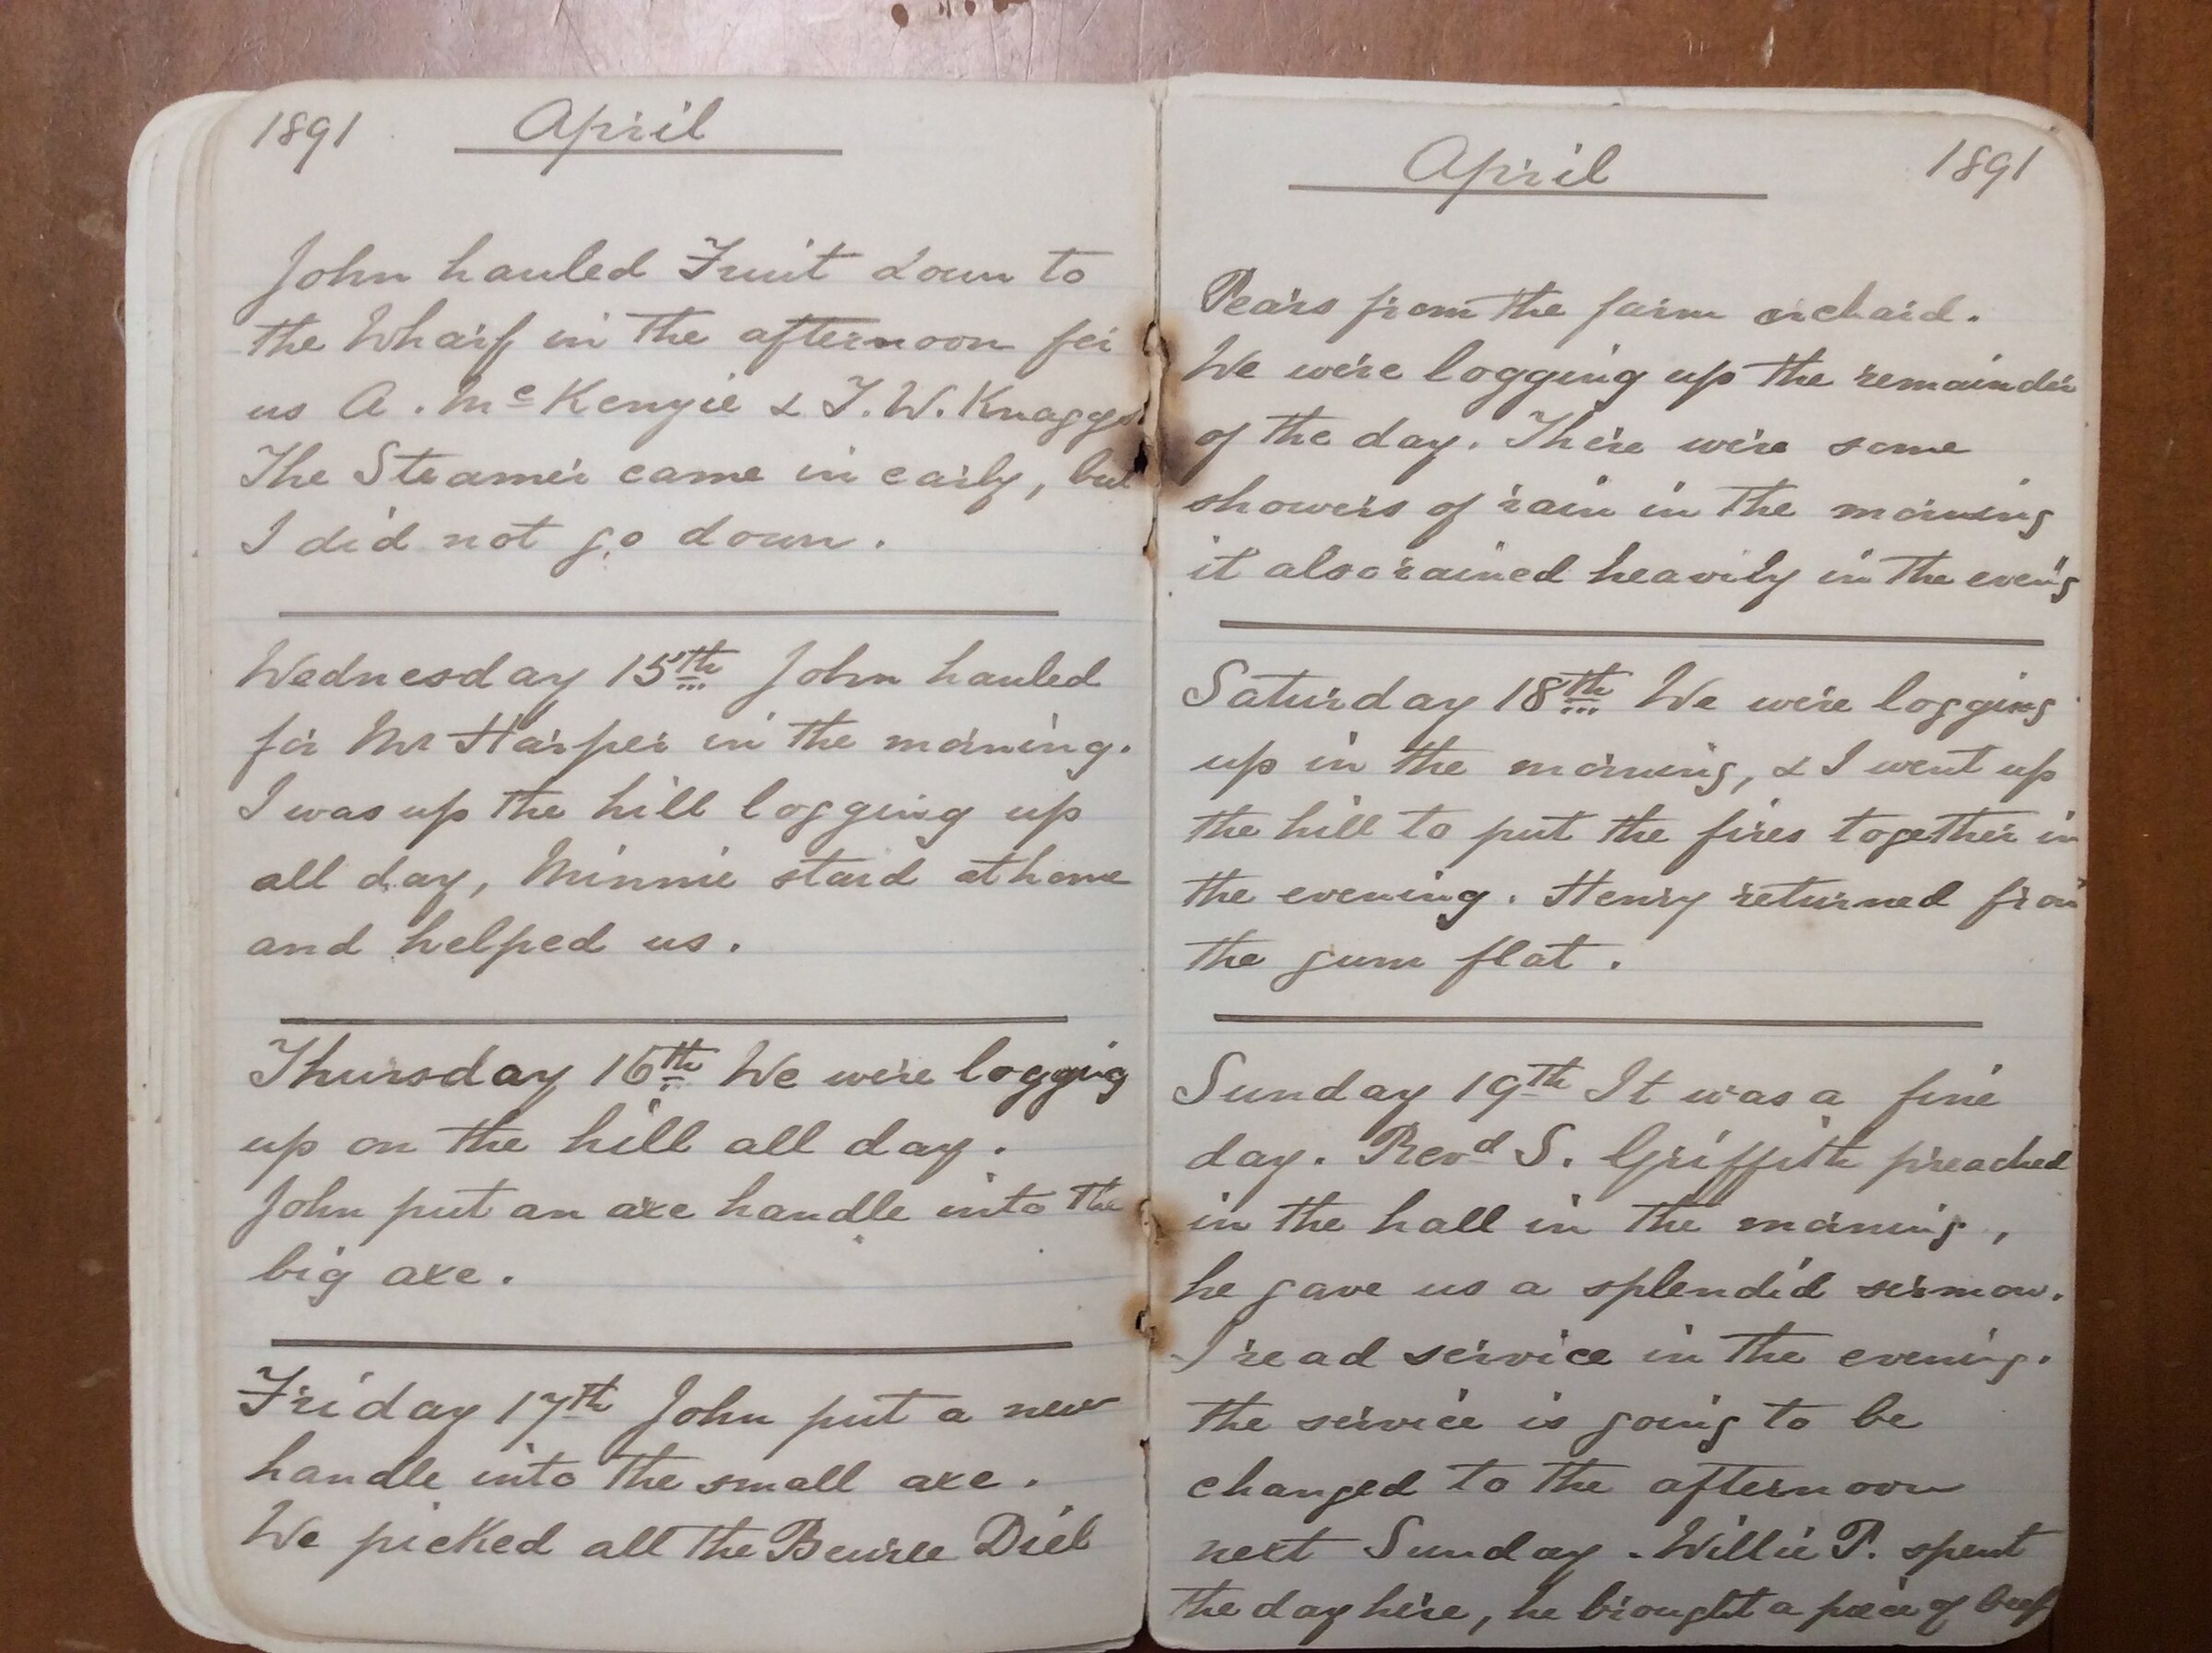 1891 April
John hauled Fruit down to
the Wharf in the afternoon for
us A. McKenzie & T. W. Knaggs
The Steamer came in early, but
I did not go down.
Wednesday 15th John hauled
for Mr Harper in the morning.
I was up the hill logging up
all day, Minnie staid at home
and helped us.
Thursday 16th We were logging
up on the hill all day.
John put an axe handle into the
big axe.
Friday 17th John put a new
handle into the small axe.
We picked all the Beurre Diel
April 1891
Pears from the farm orchard.
We were logging up the remainder
of the day. There were some
showers of rain in the morning
it also rained heavily in the even'g
Saturday 18th We were logging
up in the morning, & I went up
the hill to put the fires together in
the evening. Henry returned from
the gum flat.
Sunday 19th It was a fine
day. Revd S. Griffith preached
in the hall in the morning,
he gave us a splendid sermon.
I read service in the evening.
the service is going to be
changed to the afternoon
next Sunday. Willie P. spent
the day here, he brought a piece of beef